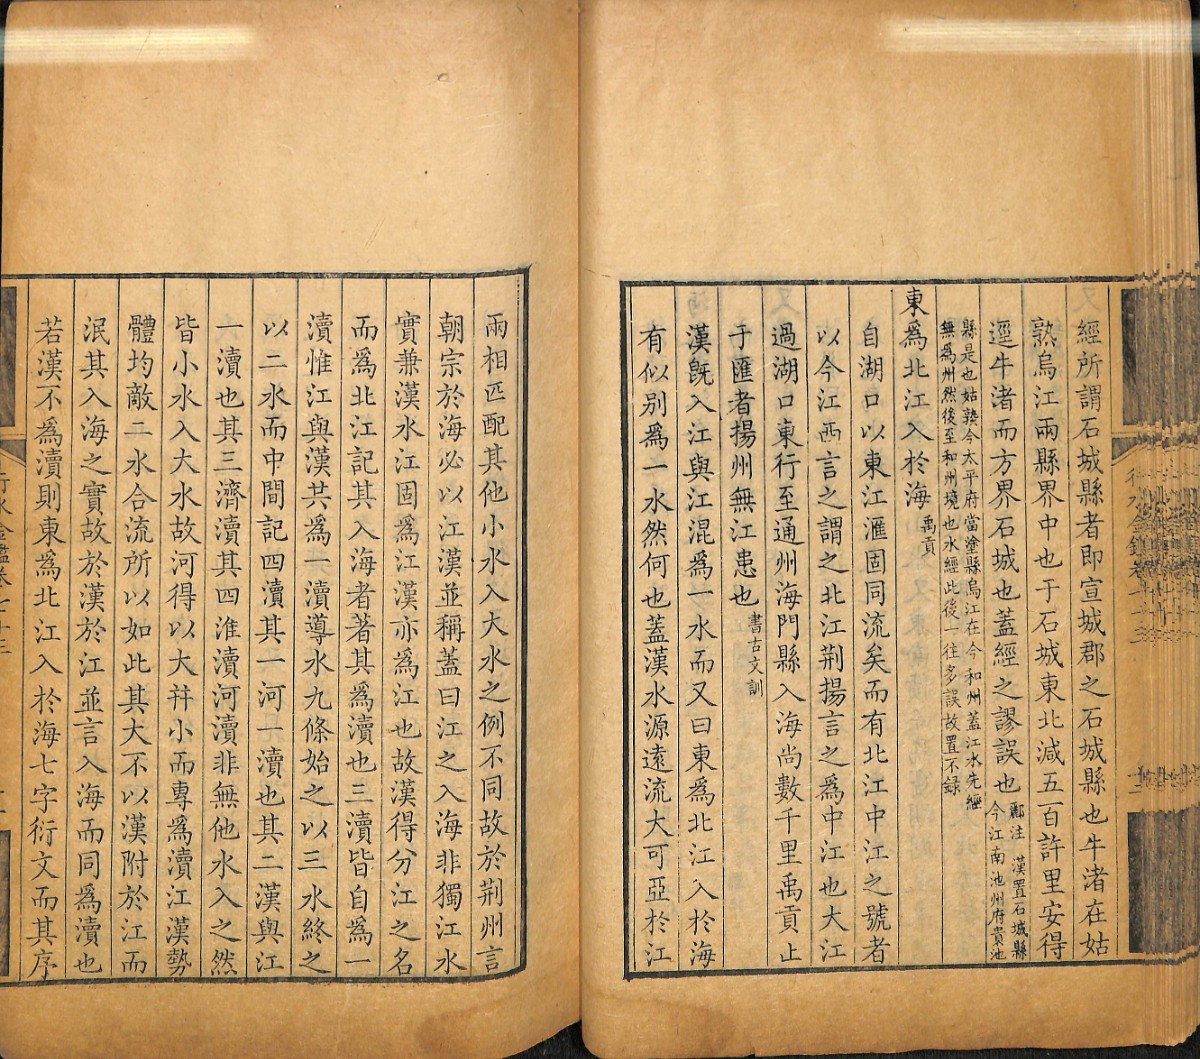 經所謂石城縣者即宣城郡之石城縣也牛渚在姑
熟烏江兩縣界中也于石城東北減五百許里安得
逕牛渚而方界石城也蓋經之謬誤也酈注 漢置石城縣
今江南池州府貴池
縣是也姑孰今太平府當塗縣烏江在今和州蓋江水先經
無為州然後至和州境也水經此後一往多誤故置不録
東為北江入於海禹貢
自湖口以東江滙固同流矣而有北江中江之號者
以今江西言之謂之北江荆揚言之為中江也大江
過湖口東行至通州海門縣入海尚數千里禹貢止
于匯者揚州無江患也書古文訓
漢旣入江與江混為一水而又曰東為北江入於海
有似别為一水然何也蓋漢水源遠流大可亞於江
兩相匹配其他小水入大水之例不同故於荆州言
朝宗於海必以江漢並稱蓋曰江之入海非獨江水
實兼漢水江固為江漢亦為江也故漢得分江之名
而為北江記其入海者著其為瀆也三瀆皆自為一
瀆惟江與漢共為一瀆導水九條始之以三水終之
以二水而中間記四瀆其一河一瀆也其二漢與江
一瀆也其三濟瀆其四淮瀆河瀆非無他水入之然
皆小水入大水故河得以大幷小而專為瀆江漢勢
體均敵二水合流所以如此其大不以漢附於江而
泯其入海之實故於漢於江並言入海而同為瀆也
若漢不為瀆則東為北江入於海七字衍文而其序
行水金鑑卷七十三